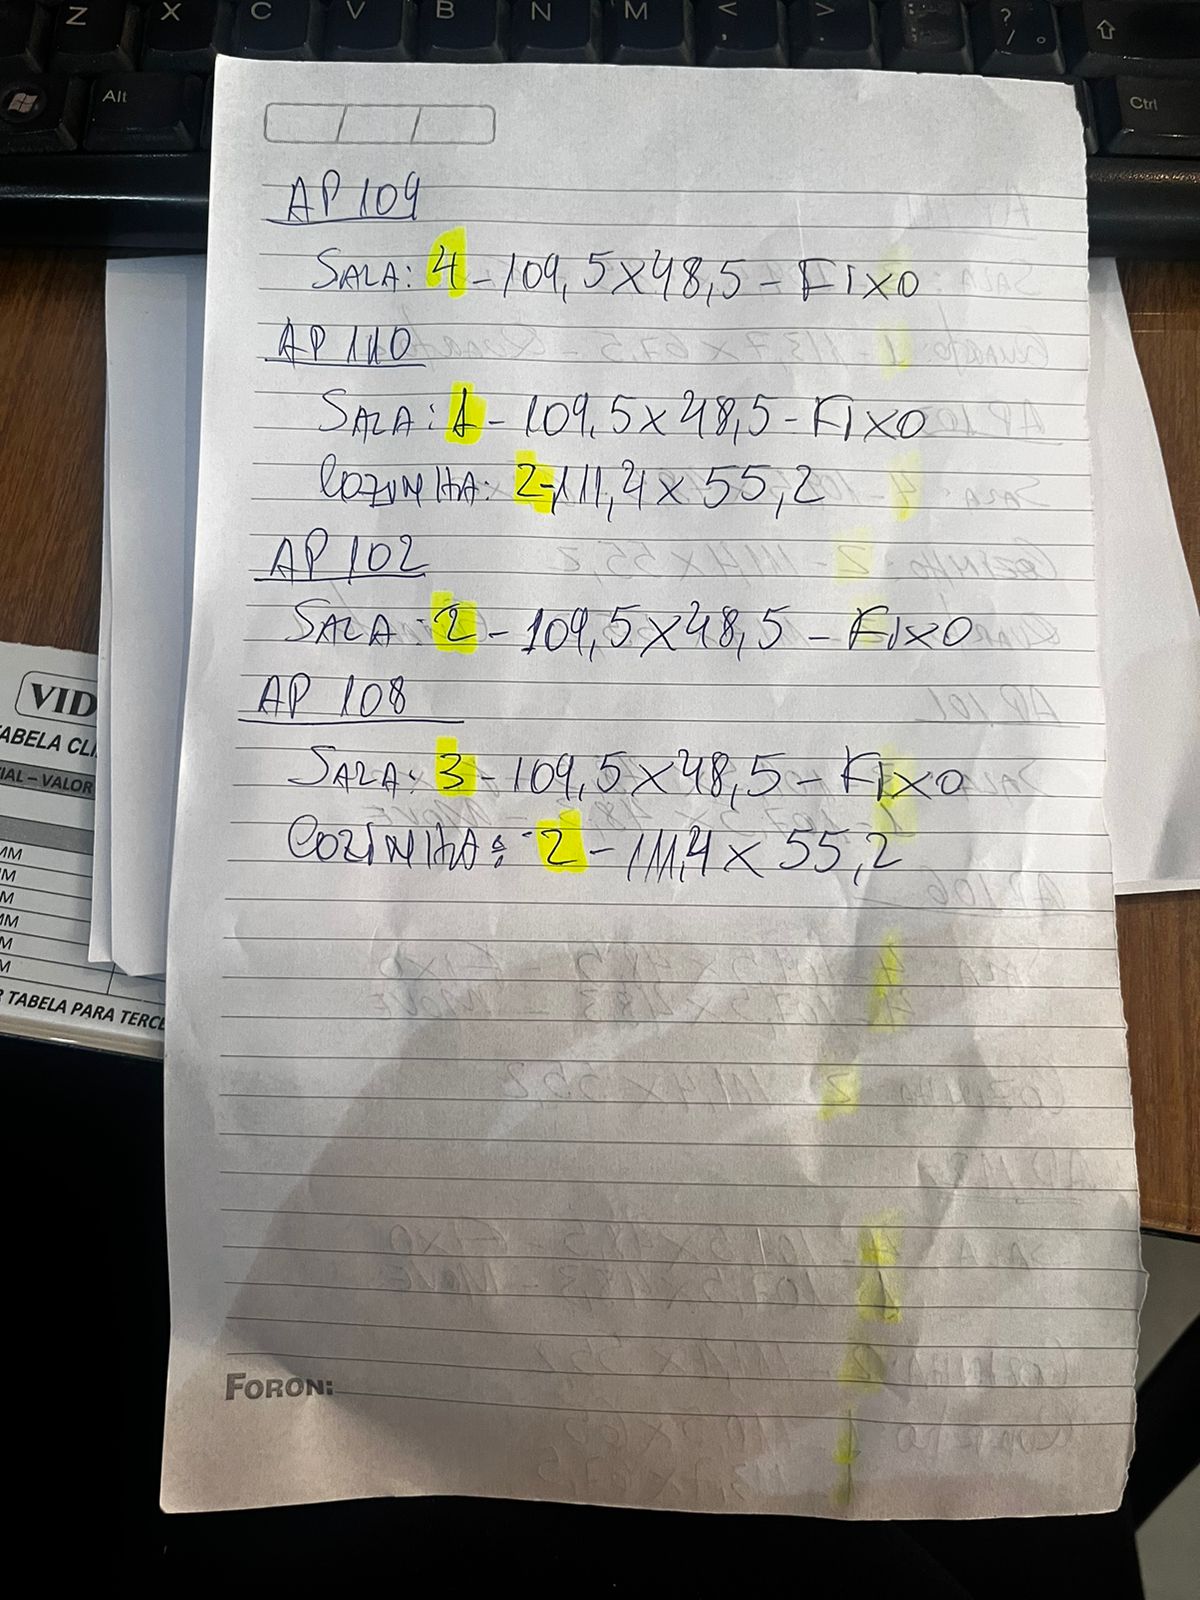 Z X C V B N M < , > . ? / °
Alt
Ctrl
AP 109
SALA: 4 - 109,5x48,5 - FIXO
AP 110
SALA: 1 - 109,5x48,5 - FIXO
COZINHA: 2-111,4x55,2
AP 102
SALA: 2 - 109,5x48,5 - FIXO
AP 108
SALA: 3 - 109,5x48,5 - FIXO
COZINHA: 2 - 111,4x55,2
VID
TABELA CLI
IAL – VALOR
MM
MM
M
MM
M
M
R TABELA PARA TERCE
FORONI